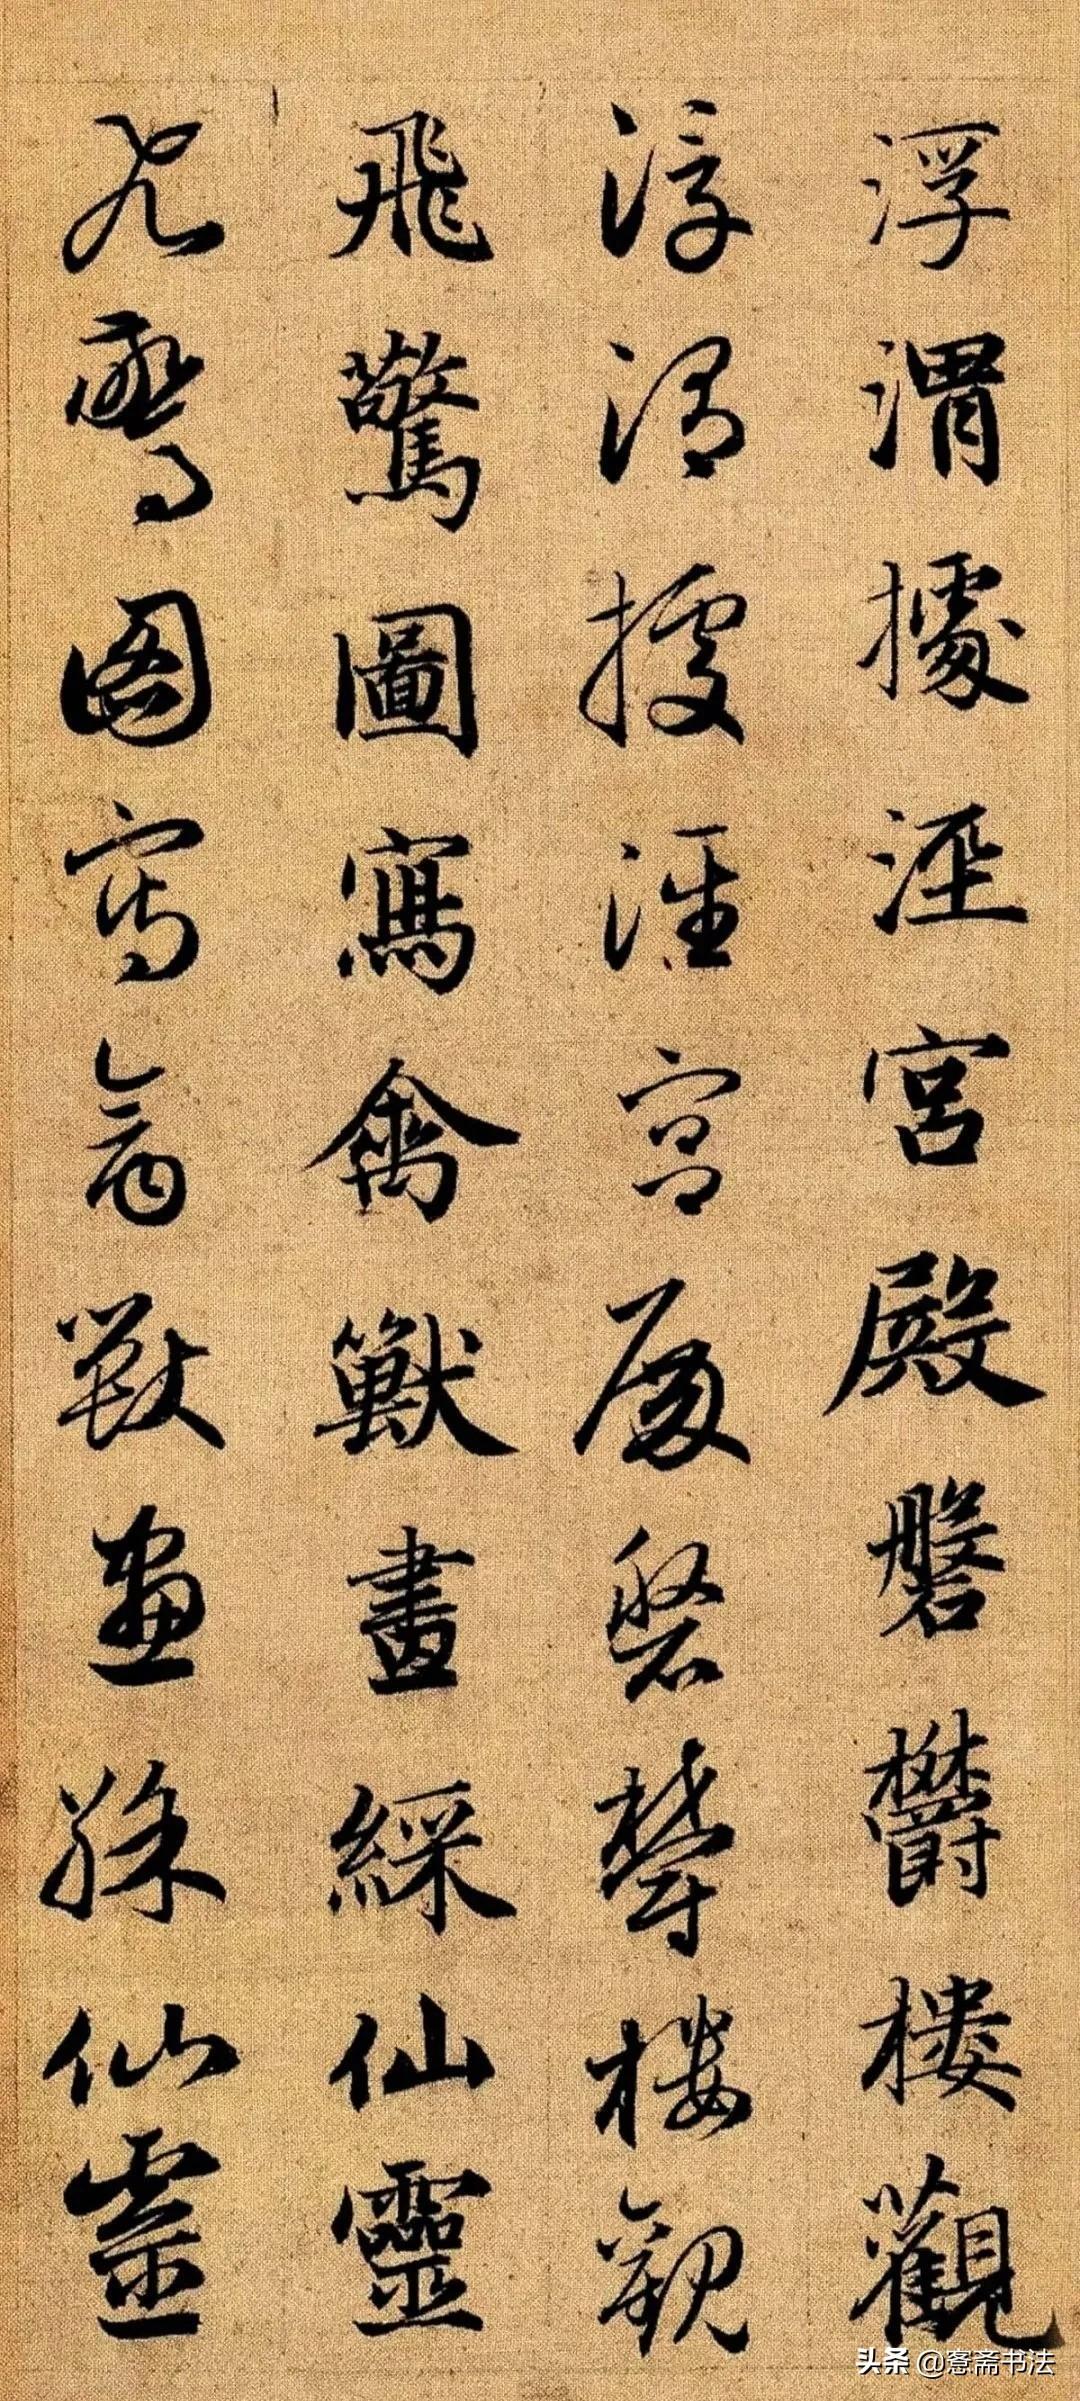 浮渭據涇宮殿磐欝樓觀
浮渭據涇宮殿磐欝樓觀
飛驚圖寫禽獸畫綵仙靈
飛驚圖寫禽獸畫綵仙靈
头条 @窓斋书法